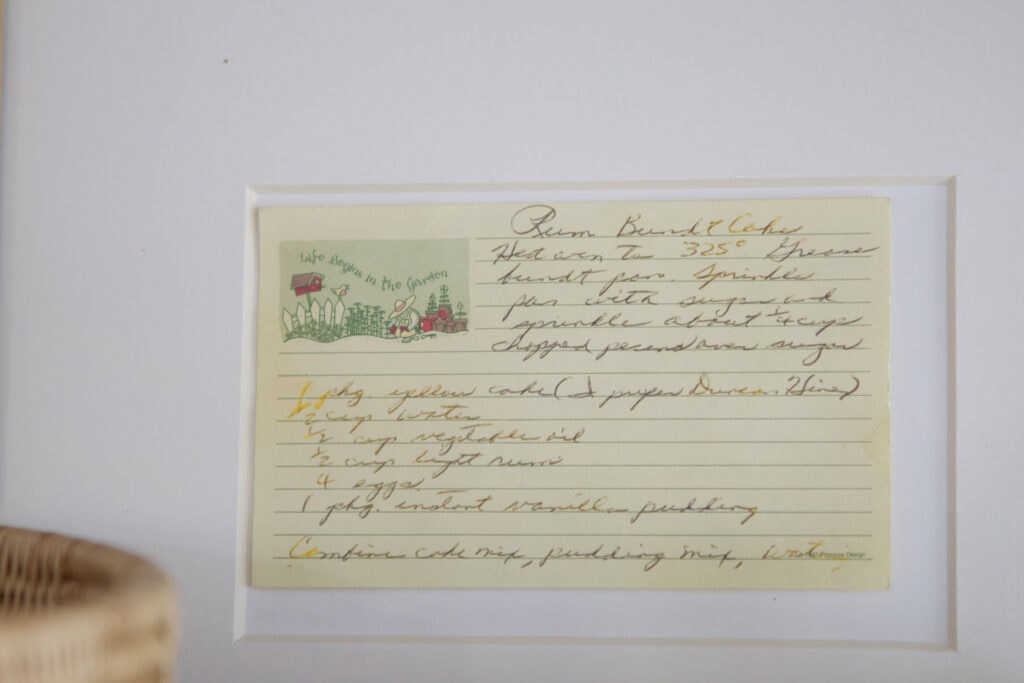 Life Begins in the Garden
Rum Bundt Cake
Heat oven to 325° Grease
bundt pan. Sprinkle
pan with sugar and
sprinkle about 1/4 cup
chopped pecans over sugar
1 pkg. yellow cake (I prefer Duncan Hines)
1/2 cup water
1/2 cup vegetable oil
1/2 cup light rum
4 eggs
1 pkg. instant vanilla pudding
Combine cake mix, pudding mix, water,
Design